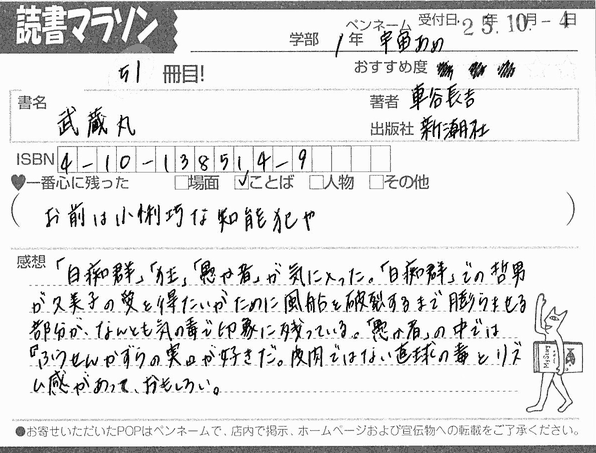 読書マラソン
学部 1年 ペンネーム 宇宙あめ 受付日・25年10月-4日
51冊目! おすすめ度
書名 武蔵丸
著者 車谷長吉
出版社 新潮社
ISBN 4-10-138514-9
♥一番心に残った □場面 ☑ことば □人物 □その他
(お前は小悧巧な知能犯や)
感想 「白痴群」「狂」「愚か者」が気に入った。「白痴群」での哲男
が久美子の愛を得たいがために風船を破裂するまで膨らませる
部分が、なんとも気の毒で印象に残っている。「愚か者」の中では
『ふうせんかずらの実』が好きだ。皮肉ではない直球の毒とリズ
ム感があって、おもしろい。
●お寄せいただいたPOPはペンネームで、店内で掲示、ホームページおよび宣伝物への転載をご了承ください。